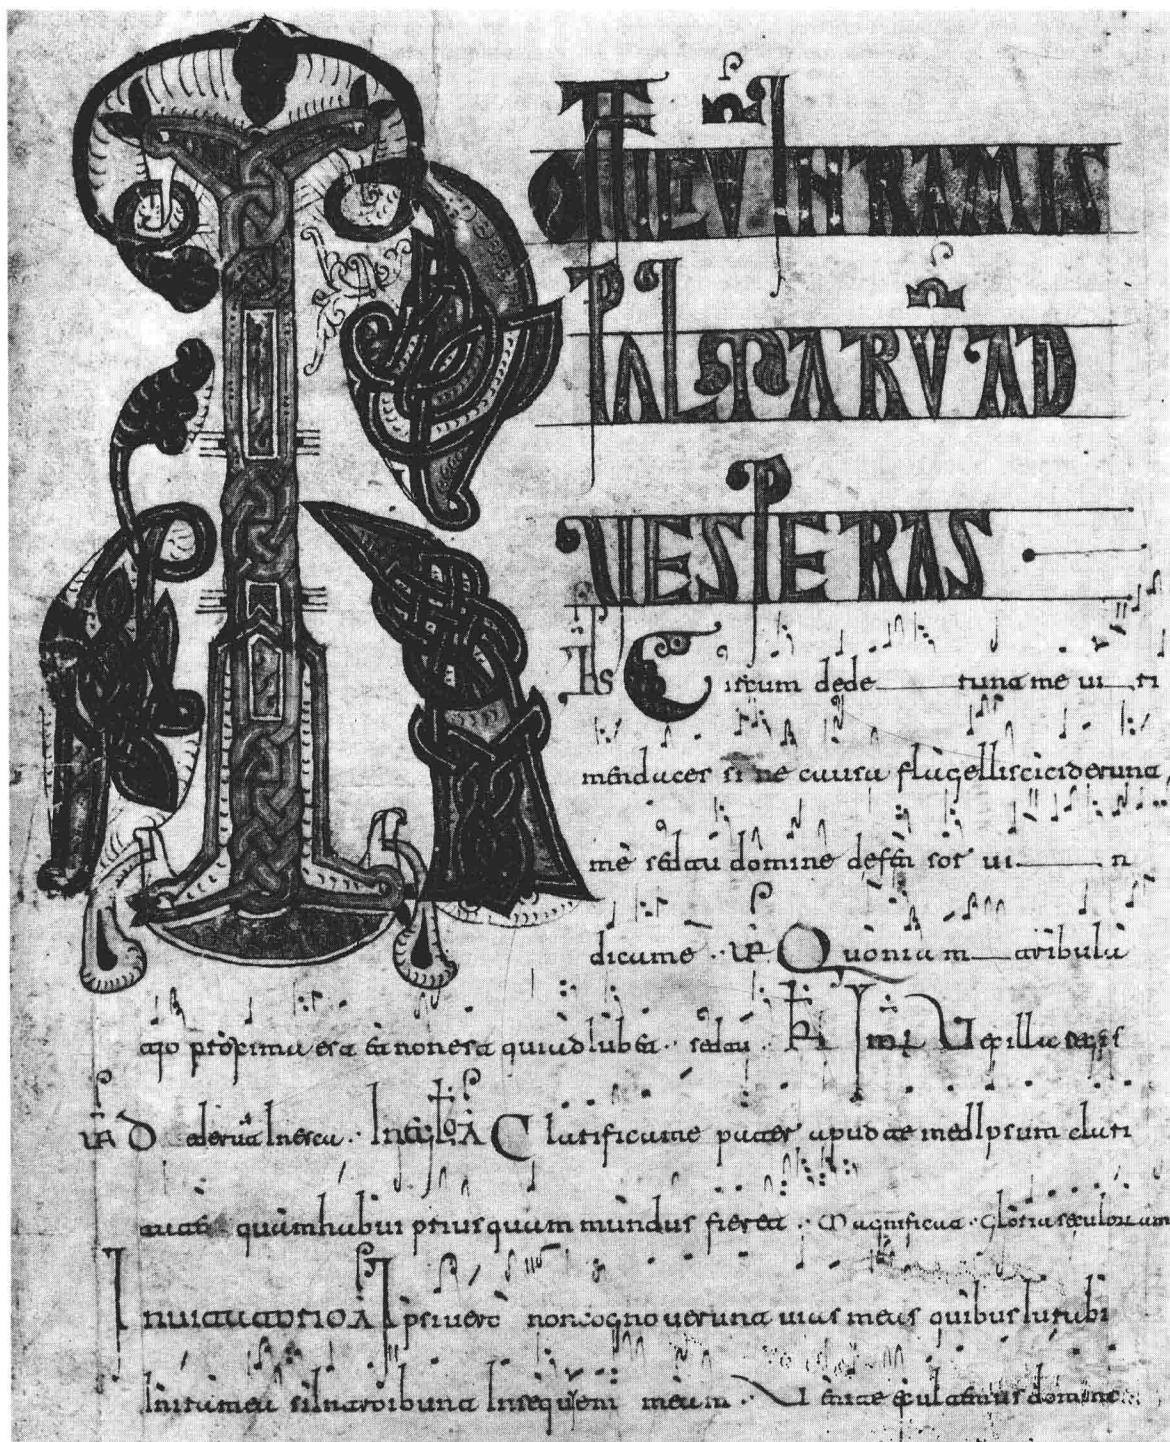 IN RAMIS
PALMARU AD
VESPERAS
Circum dederunt me uiri
mendaces sine causa flagellis ciciderunt
me sed tu domine defensor uin
dica me. Quoniam tribula
tio proxima est et non est qui sed tu. Vexilla regis
In A Clarifica me pater apud temetIpsum clari
tate quam habui priusquam mundus fieret. Magnificat. Gloria seculorum am
Inuitatorio A Ipsi uero non cognouerunt uias meas quibus Iuraui
In ira mea si Introibunt In requiem meam. Venite exultemus domino.